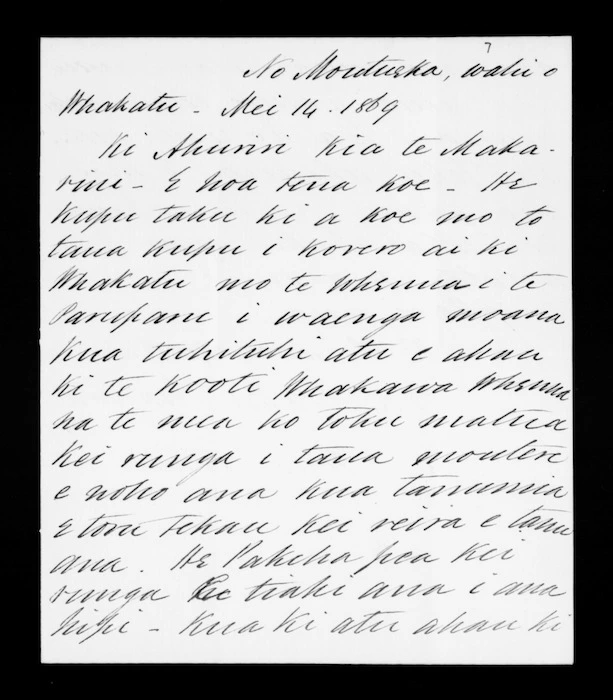 7
No Moutueka, wahi o
Whakatu - Mei 14. 1869
Ki Ahuriri Kia te Maka-
rini - E hoa tena koe - He
kupu taku ki a koe mo to
taua kupu i korero ai ki
Whakatu mo te whenua i te
i waenga moana
kua tuhituhi atu e ahau
ki te Kooti Whakawa Whenua
na te mea ko toku matua
kei runga i taua moutere
e noho ana kua tanumia
e toru tekau kei reira e tanu
ana. He Pakeha pea kei
runga e tiaki ana i ana
hipi - Kua ki atu ahau ki